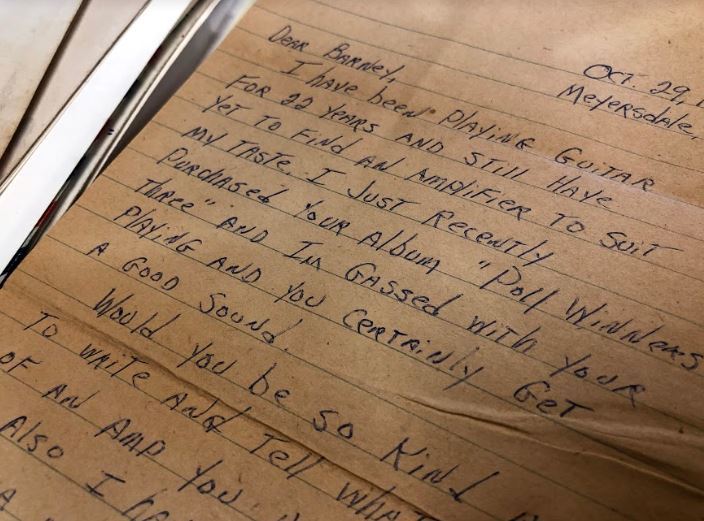 Oct. 29,
Meyersdale,
Dear Barney,
I have been playing guitar
for 22 years and still have
yet to find an amplifier to suit
my taste. I just recently
purchased your album "Poll Winners
Three" and Im gassed with your
playing and you certainly get
a good sound.
Would you be so kind
to write and tell what
of an amp you
Also I ha
A